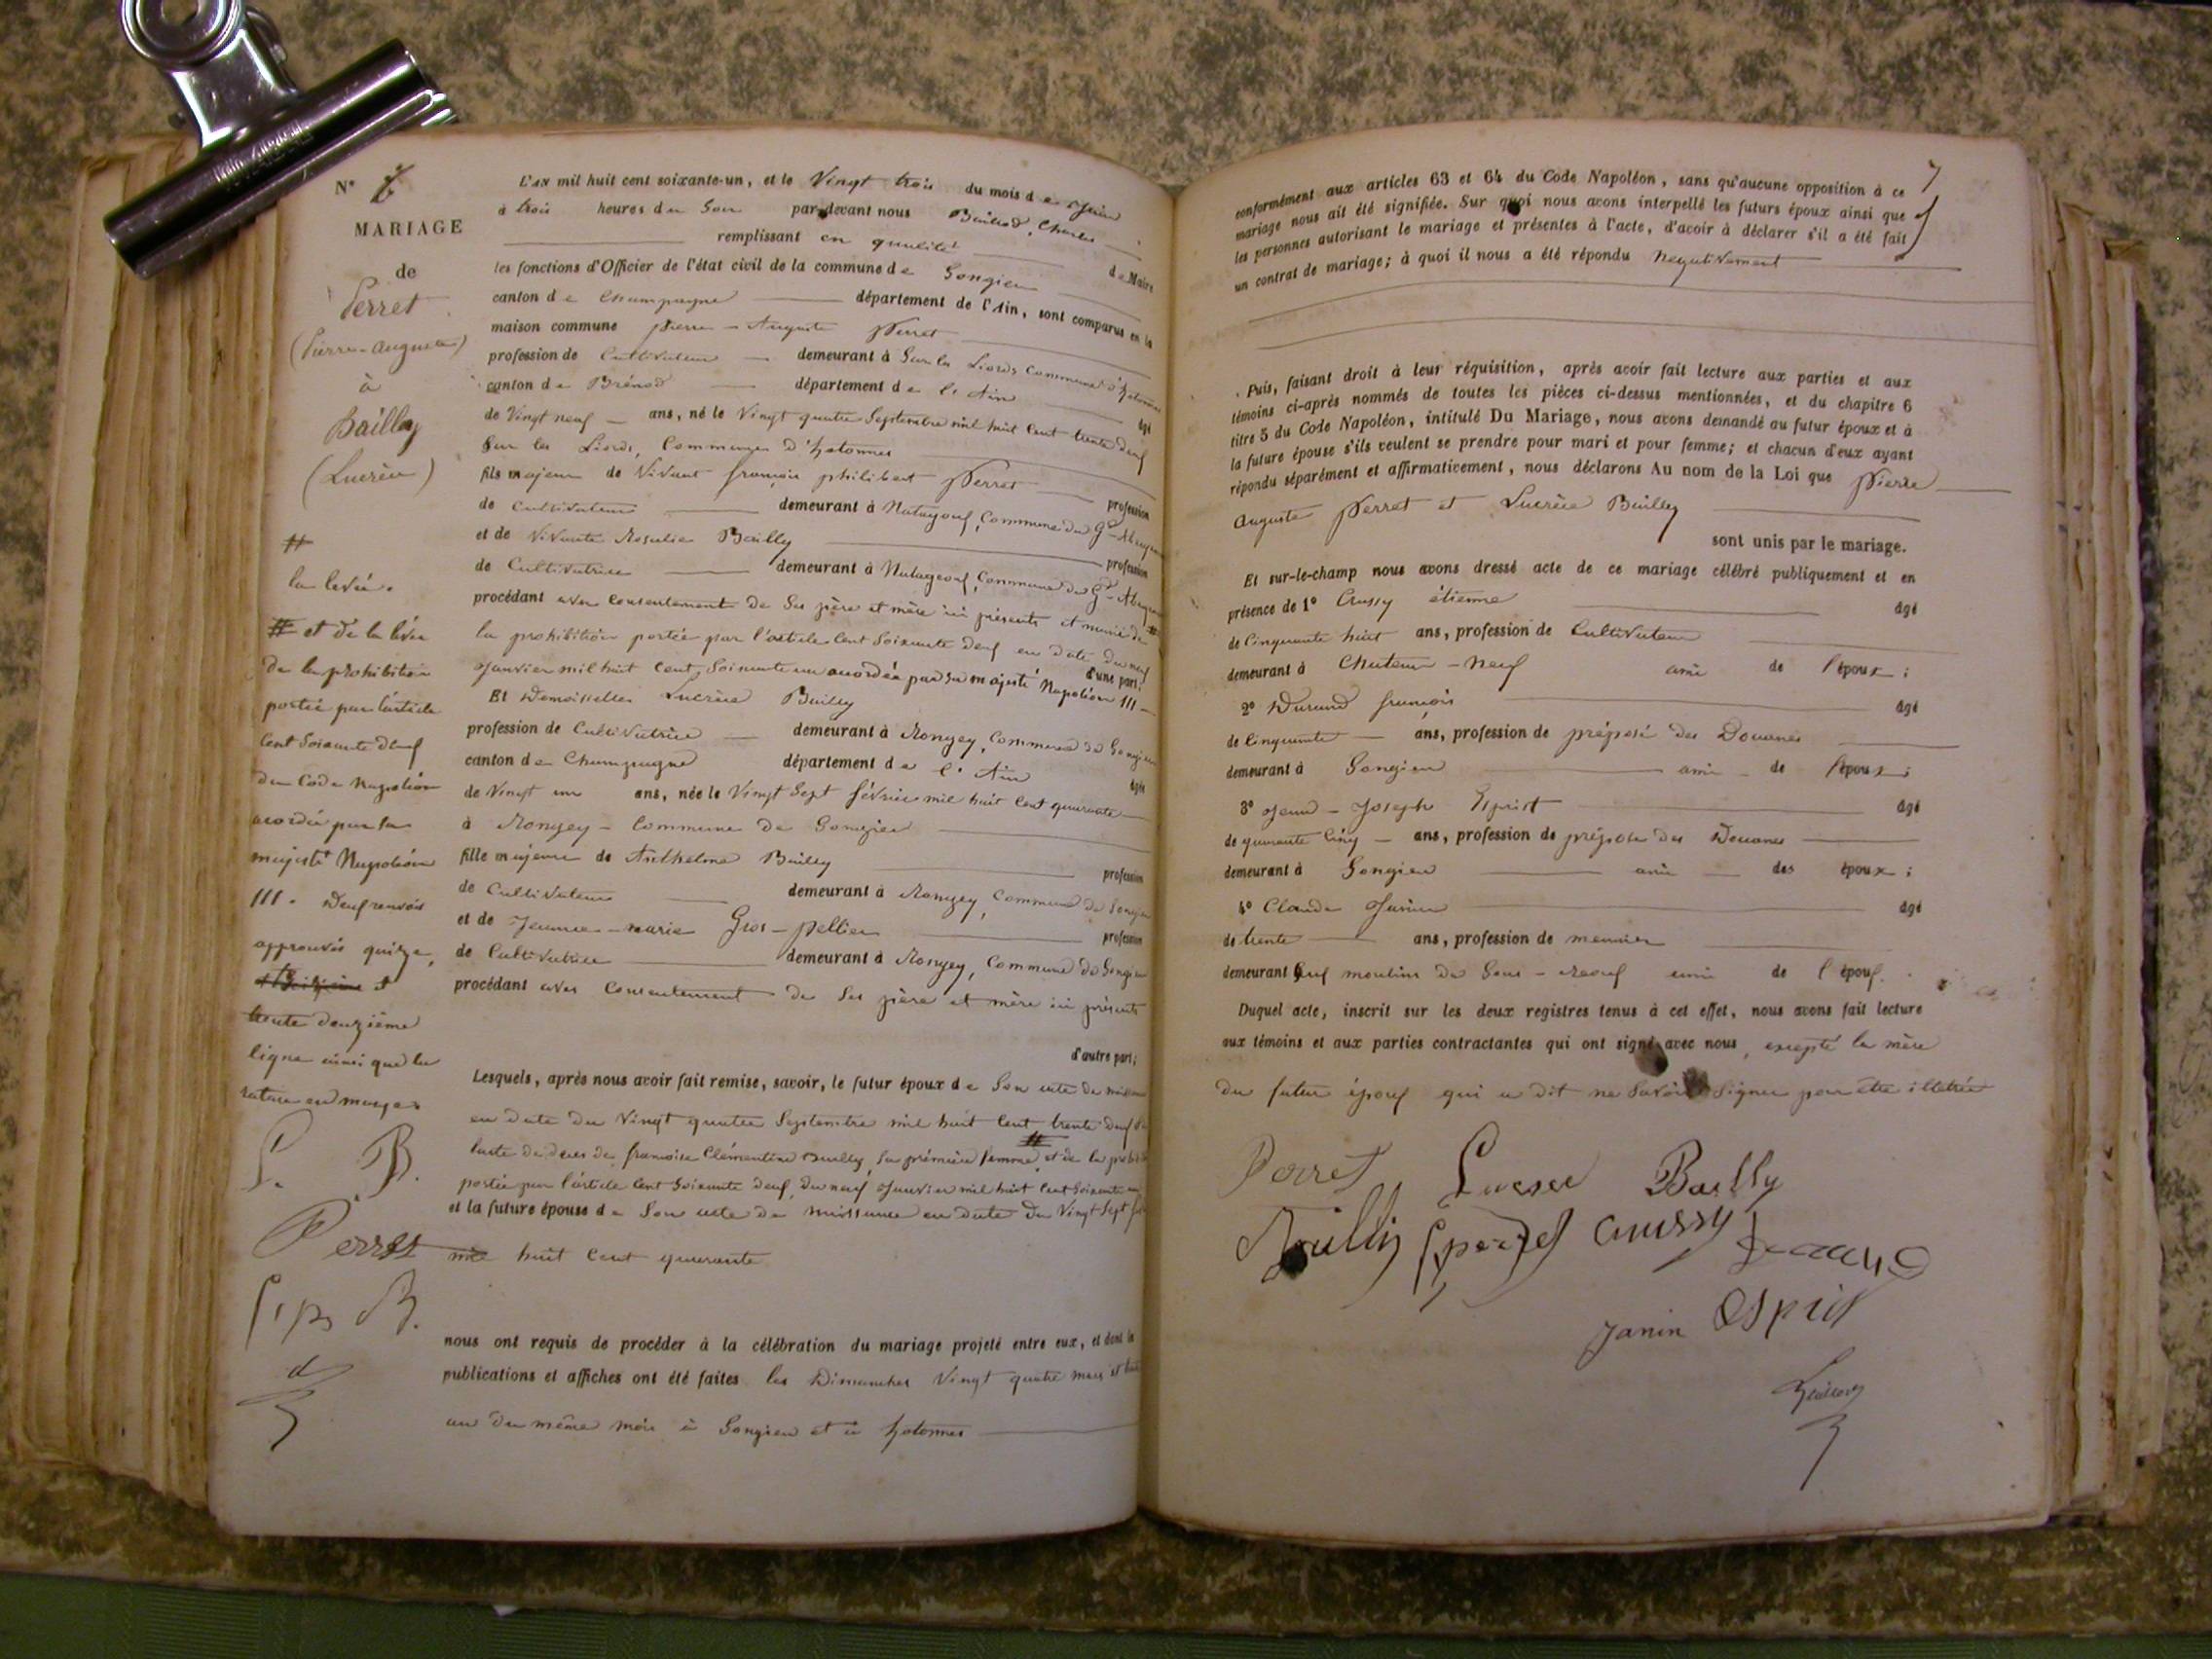 N° 7
MARIAGE
de
Perret
(Pierre-Auguste)
à
Bailly
(Lucrèce)
#
la levée.
# et de la levée
de la prohibition
portée par l'article
cent soixante deux
du Code Napoléon
acordée par sa
majesté Napoléon
III. Deux renvois
approuvés quinze,
et
trente douzième
ligne ainsi que la
rature en marge
L. B.
Perret
B.
L'AN mil huit cent soixante-un, et le Vingt trois du mois de
à trois heures du Soir par-devant nous Charles
remplissant en qualité de Maire
les fonctions d'Officier de l'état civil de la commune de Songieu
canton de Champagne département de l'Ain, sont comparus en la
maison commune Pierre-Auguste Perret
profession de Cultivateur demeurant à Sur les Liords Commune d'hotonnes
canton de Brénod département de l'Ain âgé
de Vingt neuf ans, né le Vingt quatre Septembre mil huit cent trente deux
Sur les Liords, Commune d'hotonnes
fils majeur de Vivant françois philibert Perret profession
de Cultivateur demeurant à Commune du Gd-Abergement
et de Vivante Rosalie Bailly profession
de Cultivatrice demeurant à Commune du Gd-Abergement
procédant avec consentement de Ses père et mère ici présents et munie de #
la prohibition portée par l'article Cent Soixante deux en date du neuf
Janvier mil huit cent, Soixante un acordée par sa majesté Napoléon III d'une part;
Et Demoiselle Lucrèce Bailly
profession de Cultivatrice demeurant à Rongey, Commune de Songieu
canton de Champagne département de l'Ain âgée
de Vingt un ans, née le Vingt Sept février mil huit cent quarante
à Rongey - Commune de Songieu
fille majeure de Anthelme Bailly profession
de Cultivateur demeurant à Rongey, Commune de Songieu
et de Jeanne-marie Gros-pellier profession
de Cultivatrice demeurant à Rongey, Commune de Songieu
procédant avec Consentement de Ses père et mère ici présents
d'autre part;
Lesquels, après nous avoir fait remise, savoir, le futur époux de Son acte de naissance
en date du Vingt quatre Septembre mil huit cent trente deux
l'acte de décès de françoise Clémentine Bailly, Sa prémière femme, # et de la
portée par l'article Cent Soixante deux, du neuf Janvier mil huit Cent Soixante un
et la future épouse de Son acte de naissance en date du Vingt Sept
mil huit cent quarante
nous ont requis de procéder à la célébration du mariage projeté entre eux, et dont les
publications et affiches ont été faites les Dimanches Vingt quatre mars et
un du même mois à Songieu et à hotonnes
7
conformément aux articles 63 et 64 du Code Napoléon, sans qu'aucune opposition à ce
mariage nous ait été signifiée. Sur quoi nous avons interpellé les futurs époux ainsi que
les personnes autorisant le mariage et présentes à l'acte, d'avoir à déclarer s'il a été fait
un contrat de mariage; à quoi il nous a été répondu négativement
Puis, faisant droit à leur réquisition, après avoir fait lecture aux parties et aux
témoins ci-après nommés de toutes les pièces ci-dessus mentionnées, et du chapitre 6
titre 5 du Code Napoléon, intitulé Du Mariage, nous avons demandé au futur époux et à
la future épouse s'ils veulent se prendre pour mari et pour femme; et chacun d'eux ayant
répondu séparément et affirmativement, nous déclarons Au nom de la Loi que Pierre
Auguste Perret et Lucrèce Bailly
sont unis par le mariage.
Et sur-le-champ nous avons dressé acte de ce mariage célébré publiquement et en
présence de 1° Crussy étienne âgé
de Cinquante huit ans, profession de Cultivateur
demeurant à Chateau-neuf ami de l'époux;
2° Durand françois âgé
de Cinquante ans, profession de préposé des Douanes
demeurant à Songieu ami de l'époux;
3° Jean-Joseph Esprit âgé
de quarante Cinq ans, profession de préposé des Douanes
demeurant à Songieu ami des époux;
4° Claude Janin âgé
de trente ans, profession de meunier
demeurant moulin de ami de l'époux.
Duquel acte, inscrit sur les deux registres tenus à cet effet, nous avons fait lecture
aux témoins et aux parties contractantes qui ont signé avec nous, excepté la mère
du futur époux qui a dit ne Savoir Signer pour être illetrée
Perret Lucrece Bailly
Bailly Crussy
Janin Esprit